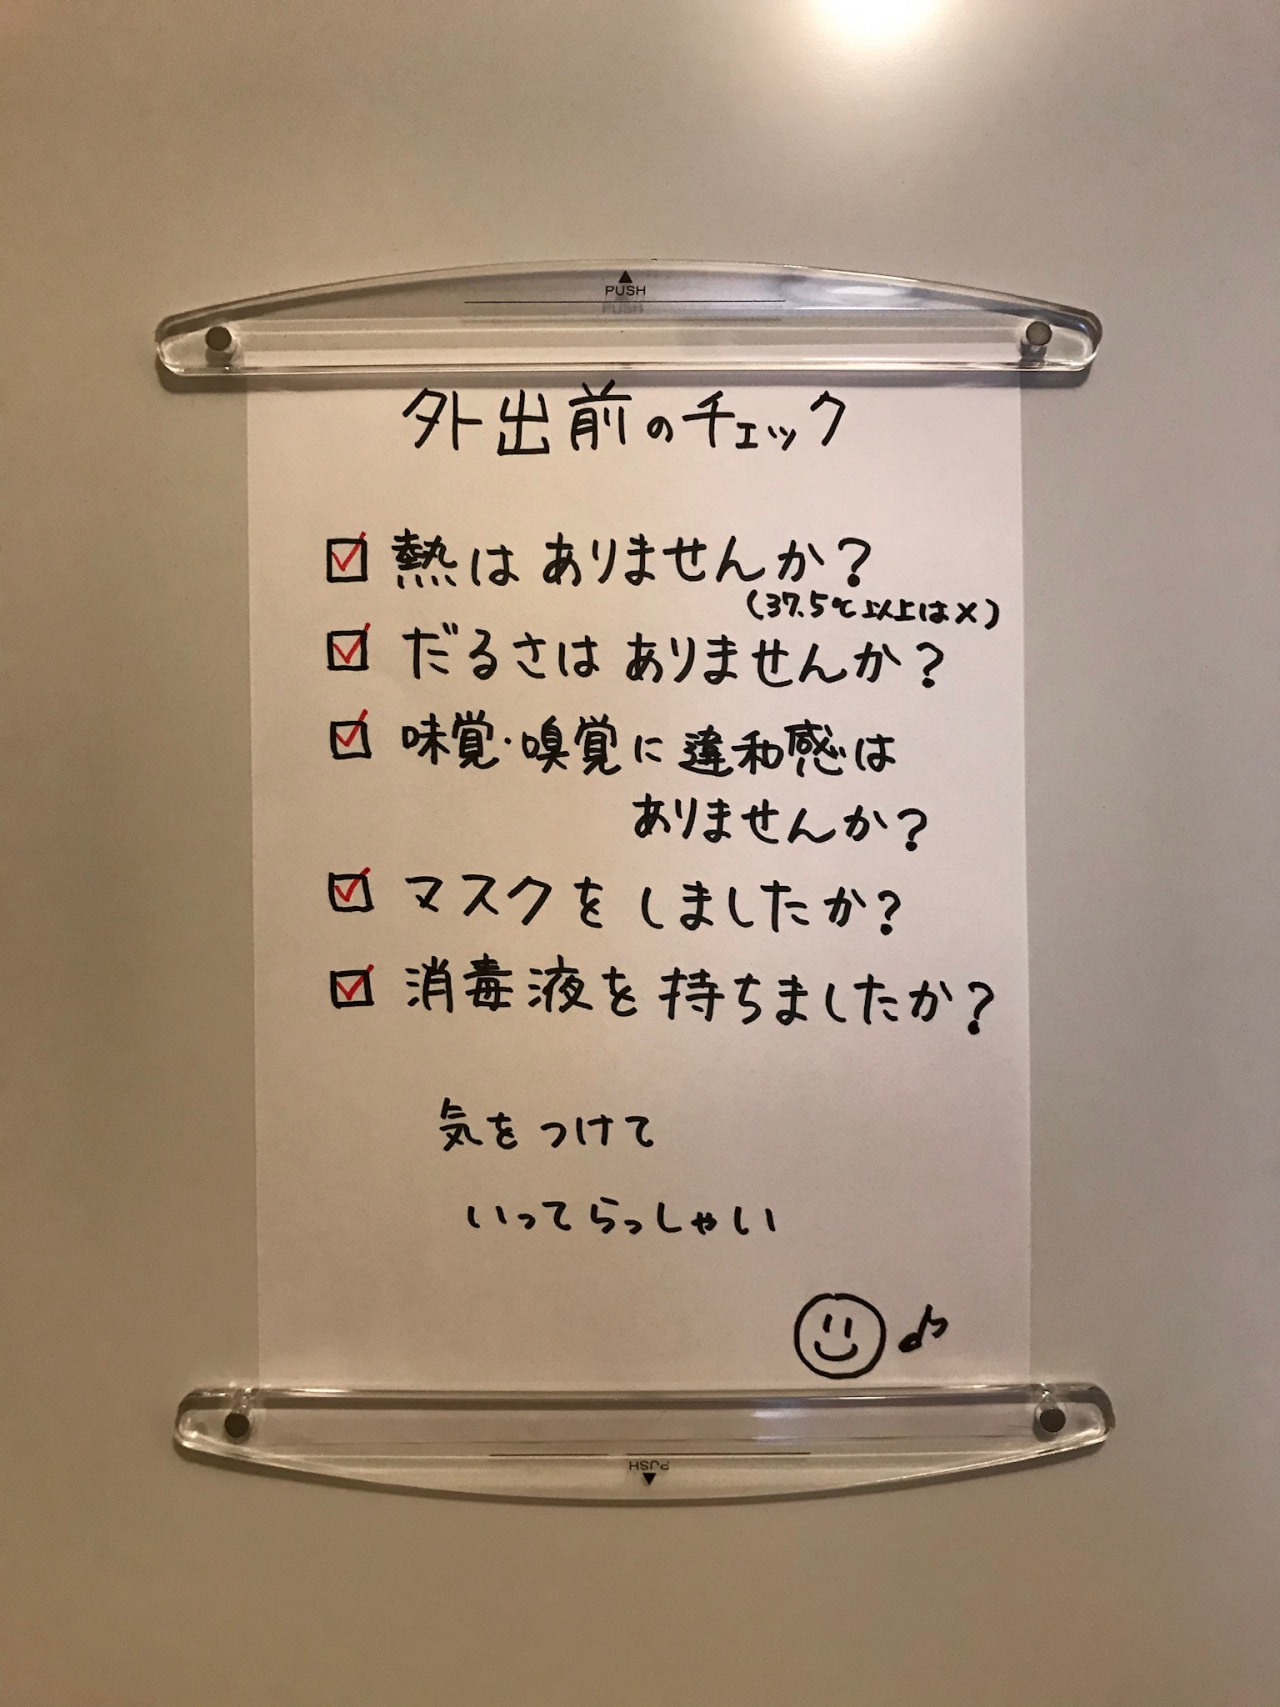 ▲
PUSH
外出前のチェック
☑ 熱はありませんか?
(37.5℃以上は×)
☑ だるさはありませんか?
☑ 味覚・嗅覚に違和感は
ありませんか?
☑ マスクをしましたか?
☑ 消毒液を持ちましたか?
気をつけて
いってらっしゃい
♪
PUSH
▲